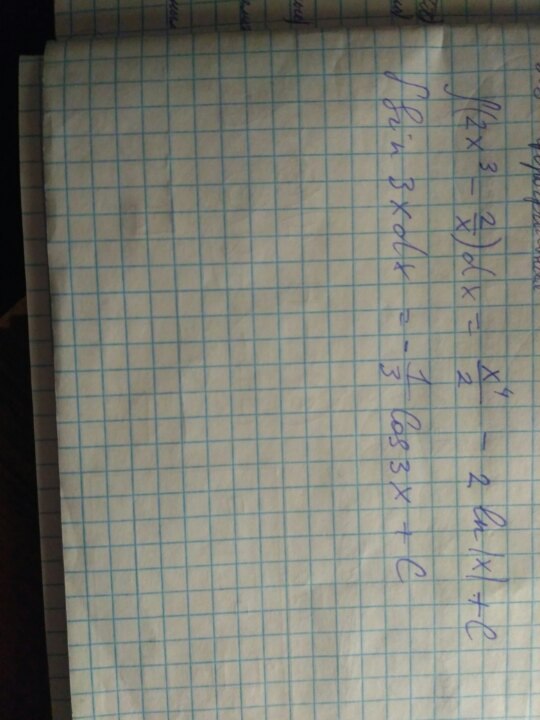 ∫(2x³ - 2/x)dx = x⁴/2 - 2 ln|x| + C
∫sin 3xdx = -1/3 cos 3x + C